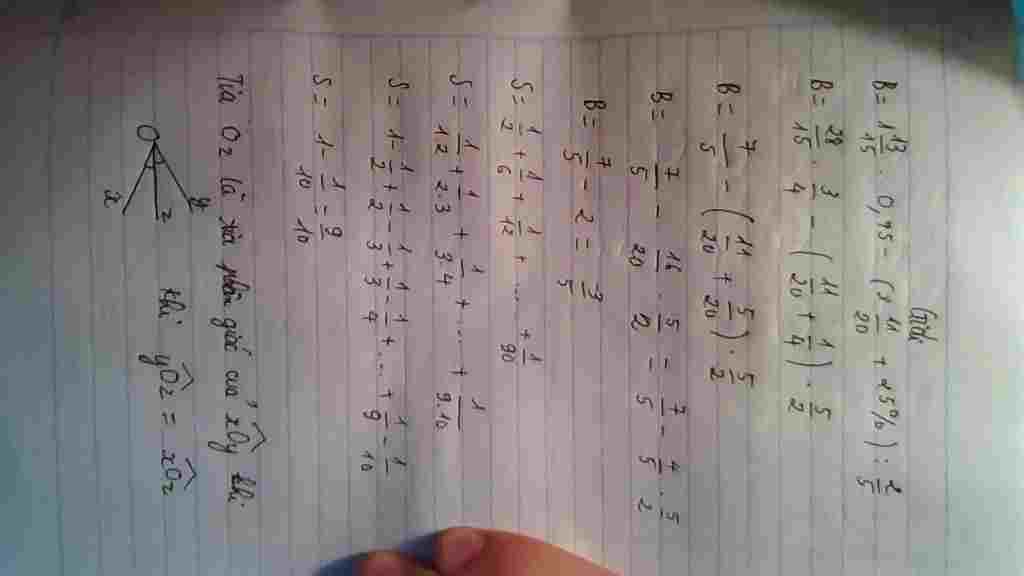 Giải
B = 1 13/15 . 0,75 - ( 11/20 + 25% ) : 2/5
B = 28/15 . 3/4 - ( 11/20 + 1/4 ) . 5/2
B = 7/5 - ( 11/20 + 5/20 ) . 5/2
B = 7/5 - 16/20 . 5/2 = 7/5 - 4/5 . 5/2
B = 7/5 - 2 = 3/5
S = 1/2 + 1/6 + 1/12 + ... + 1/90
S = 1/12 + 1/2.3 + 1/3.4 + ... + 1/9.10
S = 1 - 1/2 + 1/2 - 1/3 + 1/3 - 1/4 + ... + 1/9 - 1/10
S = 1 - 1/10 = 9/10
Tia Oz là tia phân giác của xOy khi
O y z x
khi yOz = xOz